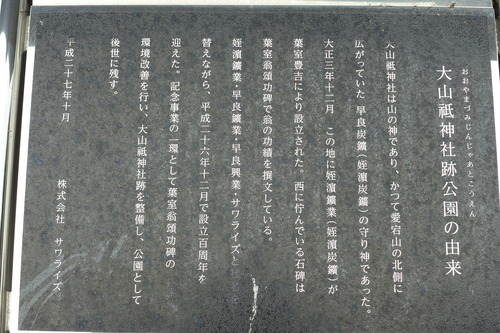 おおやまづみじんじゃあとこうえん
大山祗神社跡公園の由来
大山祗神社は山の神であり、かつて愛宕山の北側に
広がっていた早良炭鑛(姪濵炭鑛)の守り神であった。
大正三年十二月 この地に姪濵鑛業(姪濵炭鑛)が
葉室豊吉により設立された。西に佇んでいる石碑は
葉室翁頌功碑で翁の功績を撰文している。
姪濵鑛業・早良鑛業・早良興業・サワライズと
替えながら、平成二十六年十二月で設立百周年を
迎えた。記念事業の一環として葉室翁頌功碑の
環境改善を行い、大山祗神社跡を整備し、公園として
後世に残す。
平成二十七年十月
株式会社 サワライズ